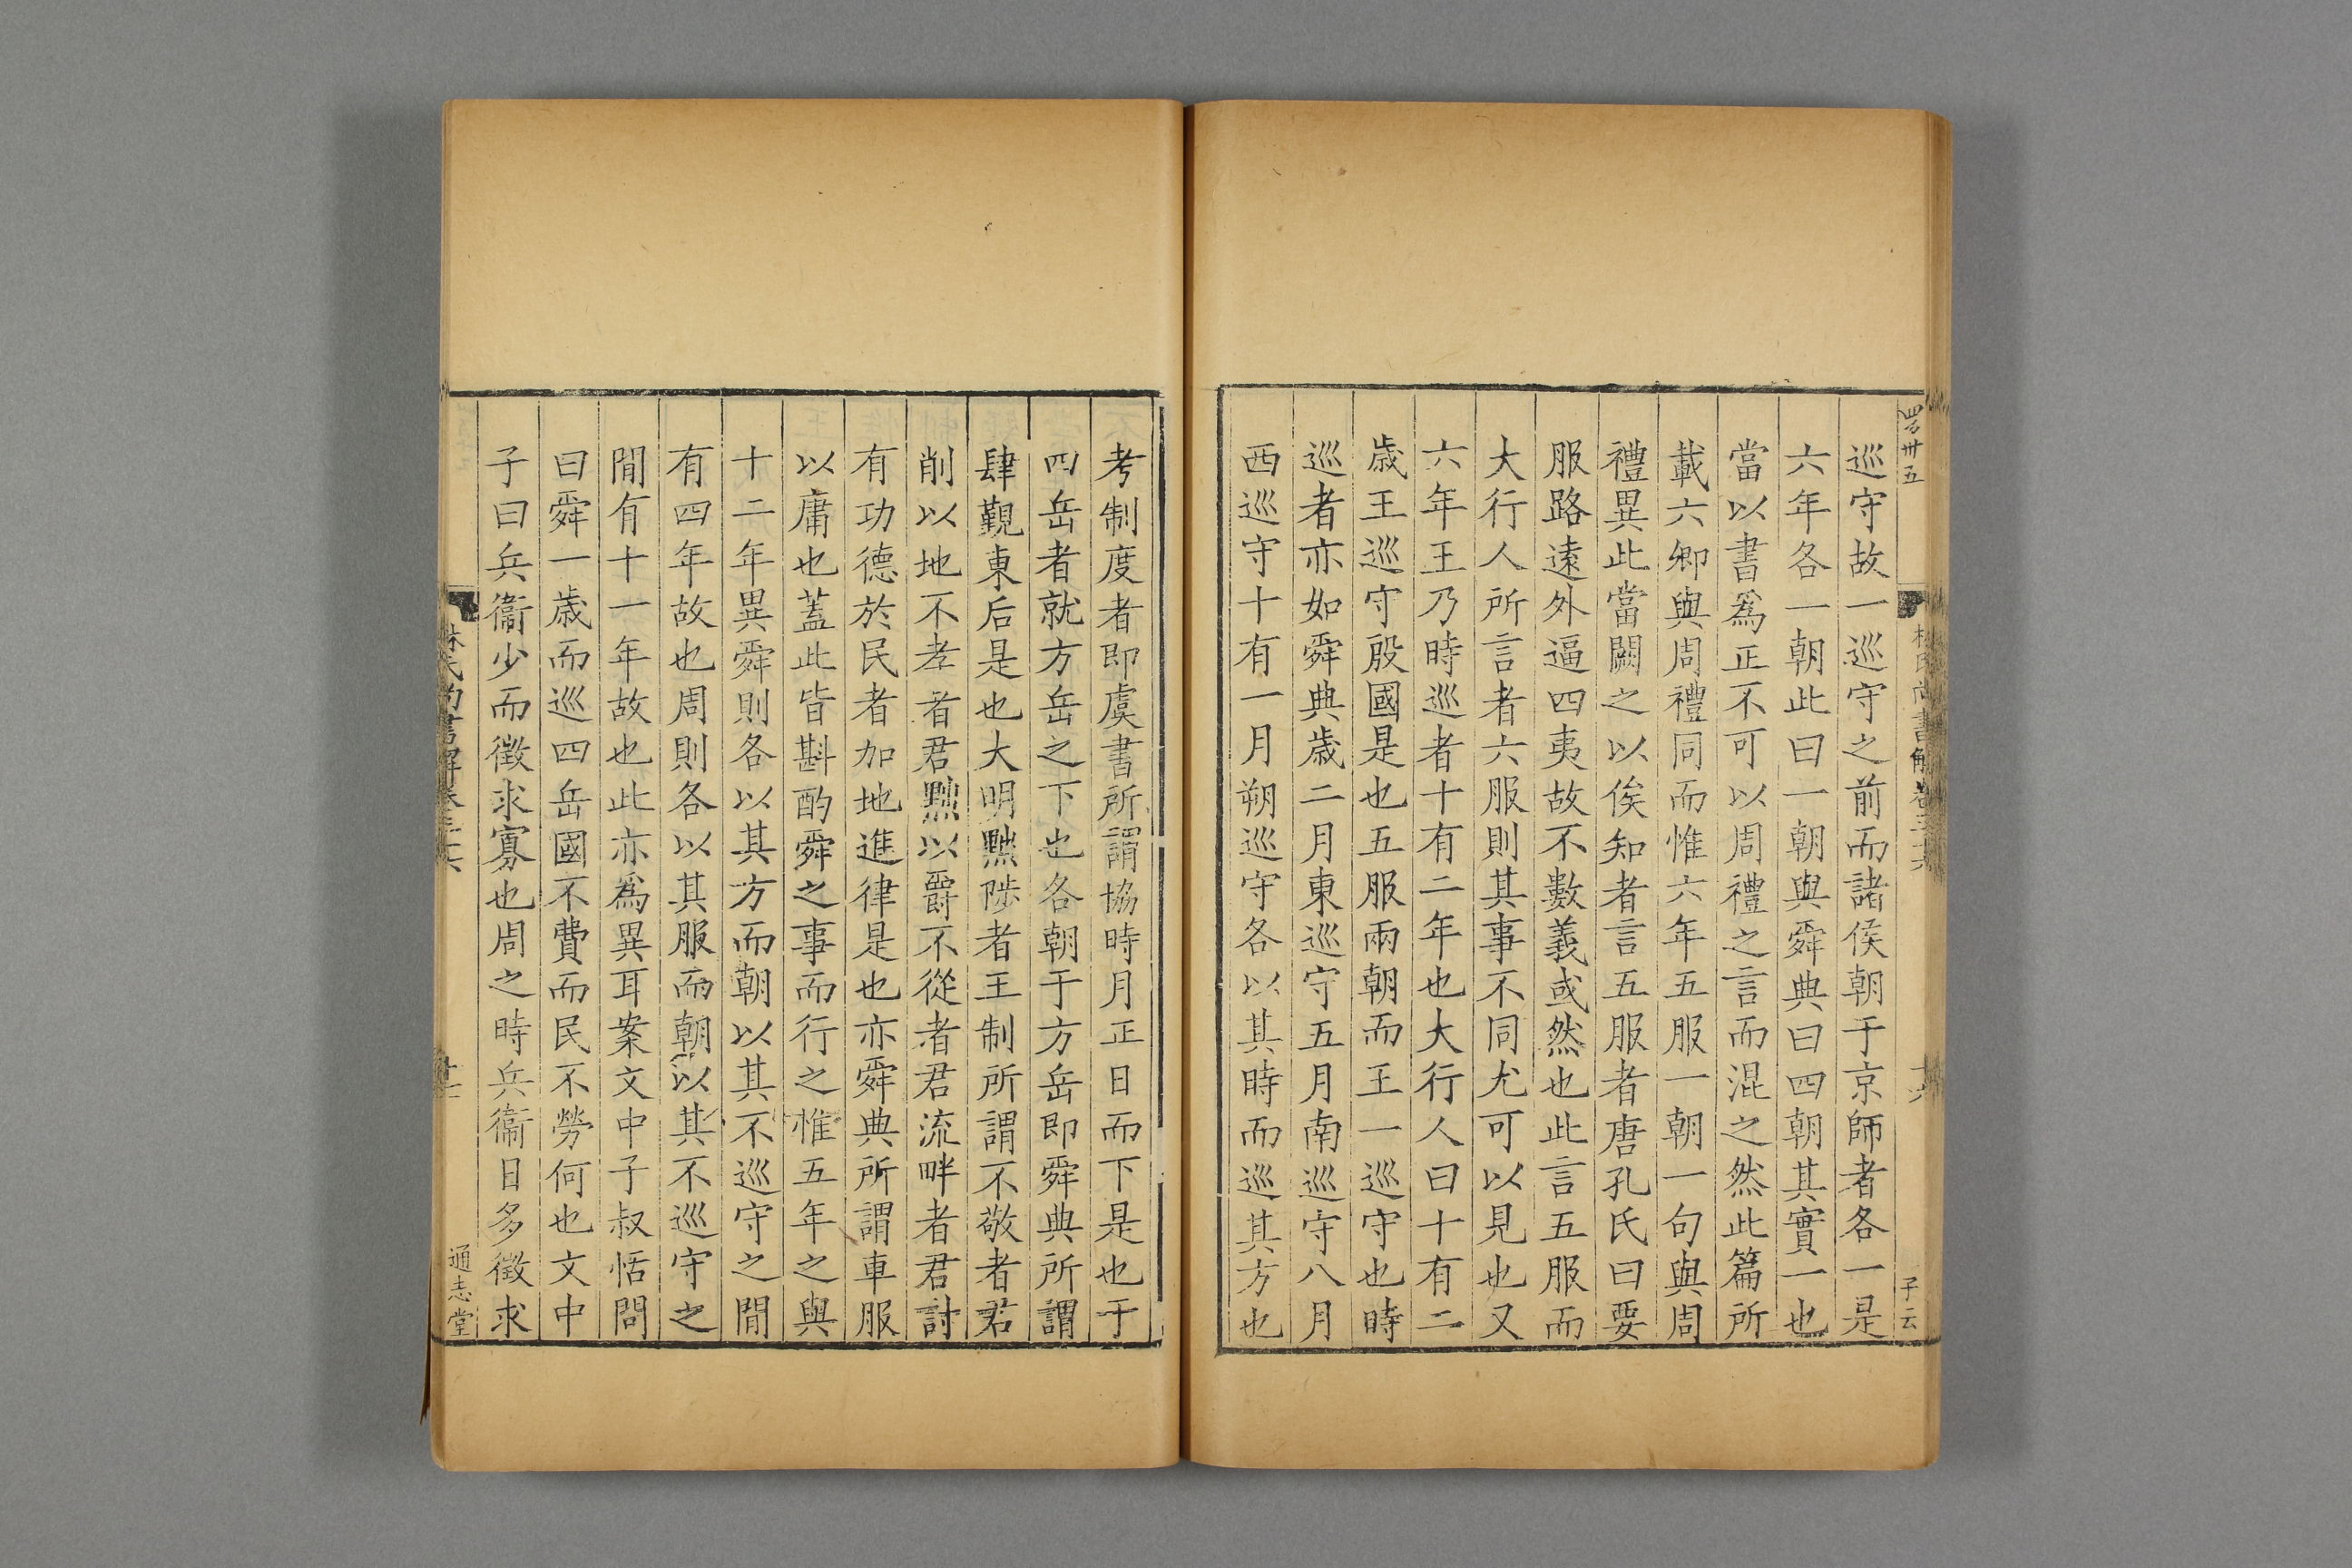 巡守故一巡守之前而諸侯朝于京師者各一是
六年各一朝此曰一朝與舜典曰四朝其實一也
當以書爲正不可以周禮之言而混之然此篇所
載六卿與周禮同而惟六年五服一朝一句與周
禮異此當闕之以俟知者言五服者唐孔氏曰要
服路遠外逼四夷故不數義或然也此言五服而
大行人所言者六服則其事不同尤可以見也又
六年王乃時巡者十有二年也大行人曰十有二
歲王巡守殷國是也五服兩朝而王一巡守也時
巡者亦如舜典歲二月東巡守五月南巡守八月
西巡守十有一月朔巡守各以其時而巡其方也
考制度者即虞書所謂協時月正日而下是也于
四岳者就方岳之下也各朝于方岳即舜典所謂
肆覲東后是也大明黜陟者王制所謂不敬者君
削以地不孝者君黜以爵不從者君流畔者君討
有功德於民者加地進律是也亦舜典所謂車服
以庸也蓋此皆斟酌舜之事而行之惟五年之與
十二年異舜則各以其方而朝以其不巡守之閒
有四年故也周則各以其服而朝以其不巡守之
閒有十一年故也此亦爲異耳案文中子叔恬問
曰舜一歲而巡四岳國不費而民不勞何也文中
子曰兵衞少而徵求寡也周之時兵衞日多徵求
林氏尚書解卷三十六
通志堂